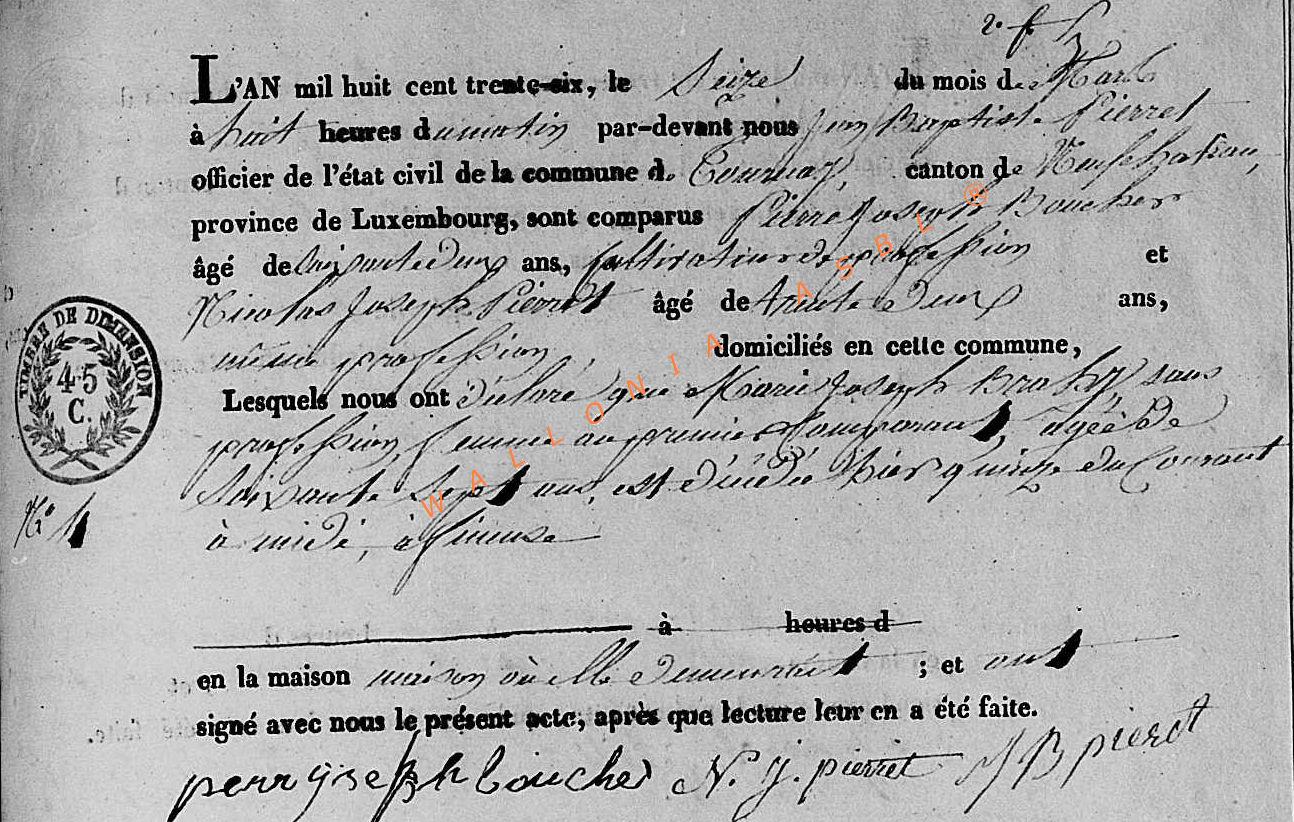 L'AN mil huit cent trente-six, le Seize du mois de Mars
à huit heures du matin par-devant nous Jean Baptiste Pierret
officier de l'état civil de la commune de Tournay, canton de Neufchateau,
province de Luxembourg, sont comparus Pierre Joseph Boucher
âgé de soixante deux ans, Cultivateur de profession et
Nicolas Joseph Pierret âgé de trente deux ans,
même profession, domiciliés en cette commune,
Lesquels nous ont déclaré que Marie Joseph sans
profession femme au premier Comparant, agée de
Soixante Sept ans, est décédée hier quinze du Courant
à midi, à
à heures d
en la maison maison où elle demeurait ; et ont
signé avec nous le présent acte, après que lecture leur en a été faite.
perr joseph boucher N. J. pierret J B pieret
TIMBRE DE DIMENSION
45
C.
N° 1
WALLONIA ASBL ®